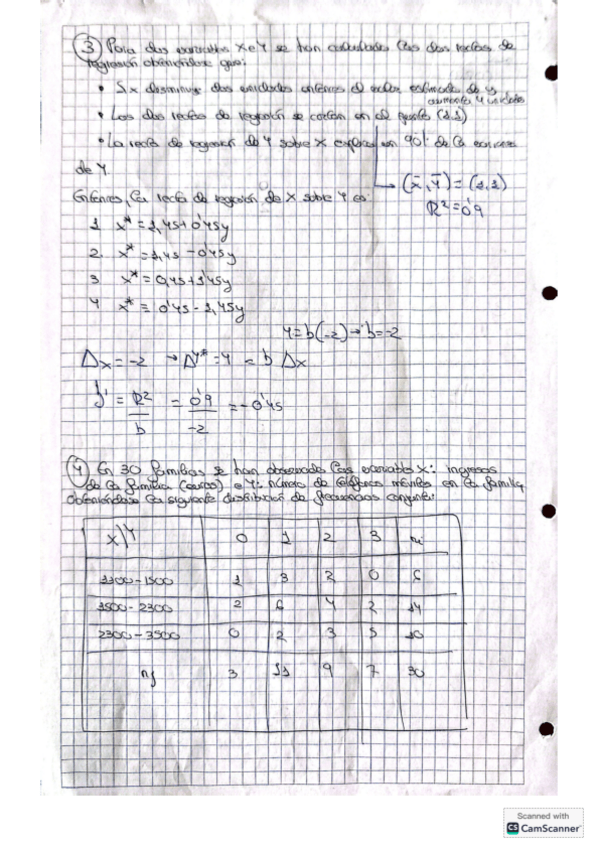 3 Para dos variables X e Y se han calculado las dos rectas de
regresión obteniéndose que:
• Si x disminuye dos unidades entonces el valor estimado de y
aumenta 4 unidades
• Las dos rectas de regresión se cortan en el punto (1,1)
• La recta de regresión de Y sobre X explica un 90% de la varianza
de Y
→ (x̄, ȳ) = (1,1)
R² = 0'9
Entonces, la recta de regresión de X sobre Y es:
1 x* = 1,45 + 0'45y
2. x* = 1,45 - 0'45y
3 x* = 0,45 + 1'45y
4 x* = 0'45 - 1,45y
4 = b(-2) → b = -2
Δx = -2 → Δy* = 4 = b Δx
b' = R²/b = 0'9/-2 = -0'45
4 En 30 familias se han observado las variables X: ingresos
de la familia (euros) e Y: número de teléfonos móviles en la familia,
obteniéndose la siguiente distribución de frecuencias conjunta:
X\Y 0 1 2 3 ni
1100-1500 1 3 2 0 6
1500-2300 2 6 4 2 14
2300-3500 0 2 3 5 10
nj 3 11 9 7 30
Scanned with
CS CamScanner